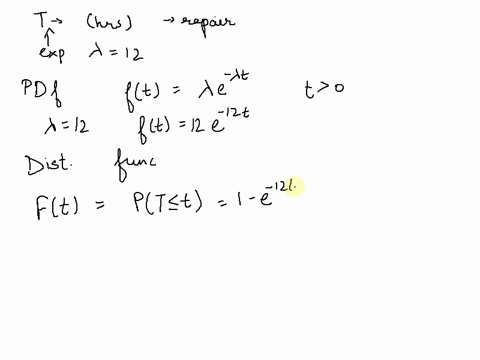 T → (hrs) → repair
↑
exp λ = 12
PDf f(t) = λe^{-λt} t > 0
λ = 12 f(t) = 12 e^{-12t}
Dist. func
F(t) = P(T ≤ t) = 1 - e^{-12